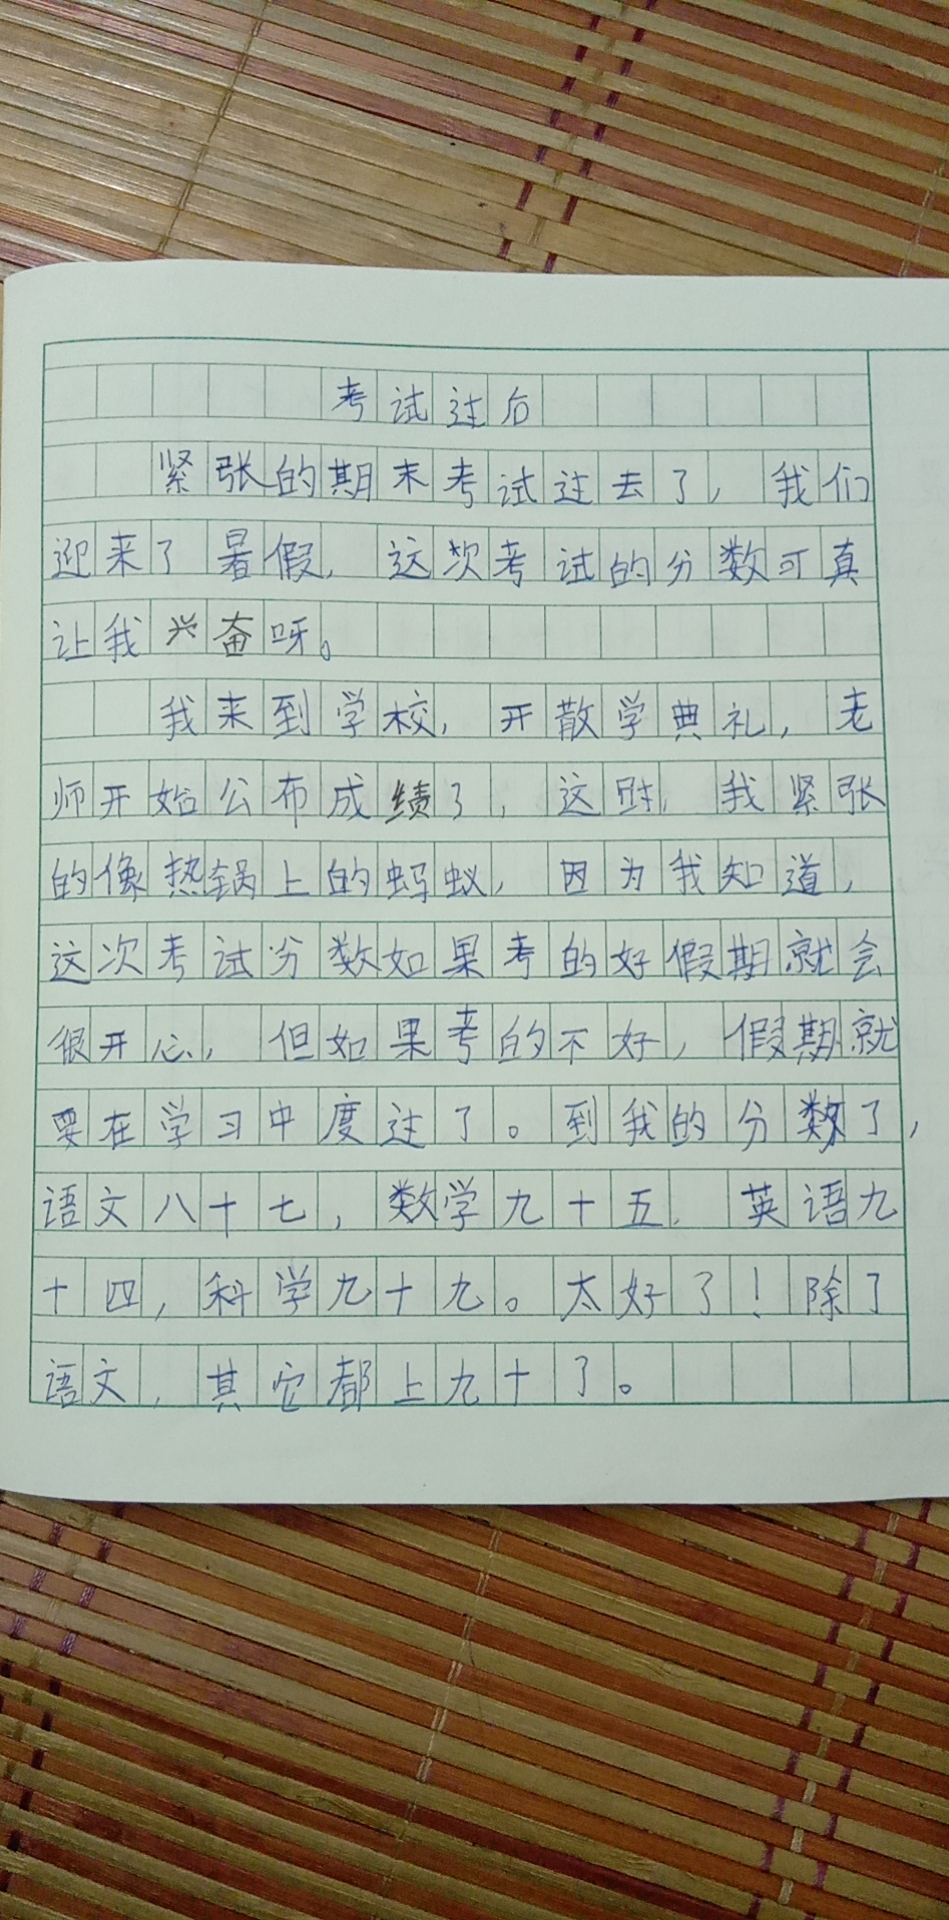 考试过后
紧张的期末考试过去了，我们
迎来了暑假，这次考试的分数可真
让我兴奋呀。
我来到学校，开散学典礼，老
师开始公布成绩了，这时，我紧张
的像热锅上的蚂蚁，因为我知道，
这次考试分数如果考的好假期就会
很开心，但如果考的不好，假期就
要在学习中度过了。到我的分数了，
语文八十七，数学九十五，英语九
十四，科学九十九。太好了！除了
语文，其它都上九十了。